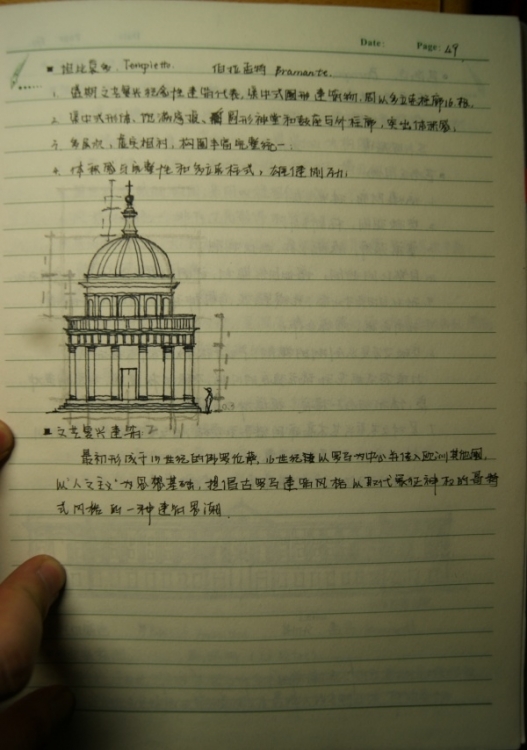 Date: Page: 49
■ 坦比哀多. Tempietto. 伯拉孟特 Bramante.
1. 盛期文艺复兴纪念性建筑代表, 集中式圆形建筑物, 周以多立克柱廊16根.
2. 集中式形体、饱满穹顶、圆形神堂和鼓座与外柱廊, 突出体积感.
3. 多层次, 虚实相衬, 构图丰富完整统一.
4. 体积感与完整性和多立克柱式, 雄健刚劲.
■ 文艺复兴建筑:
最初形成于15世纪的佛罗伦萨, 16世纪起以罗马为中心并传入欧洲其他国,
以"人文主义"为思想基础, 提倡古罗马建筑风格以取代象征神权的哥特
式风格的一种建筑思潮.